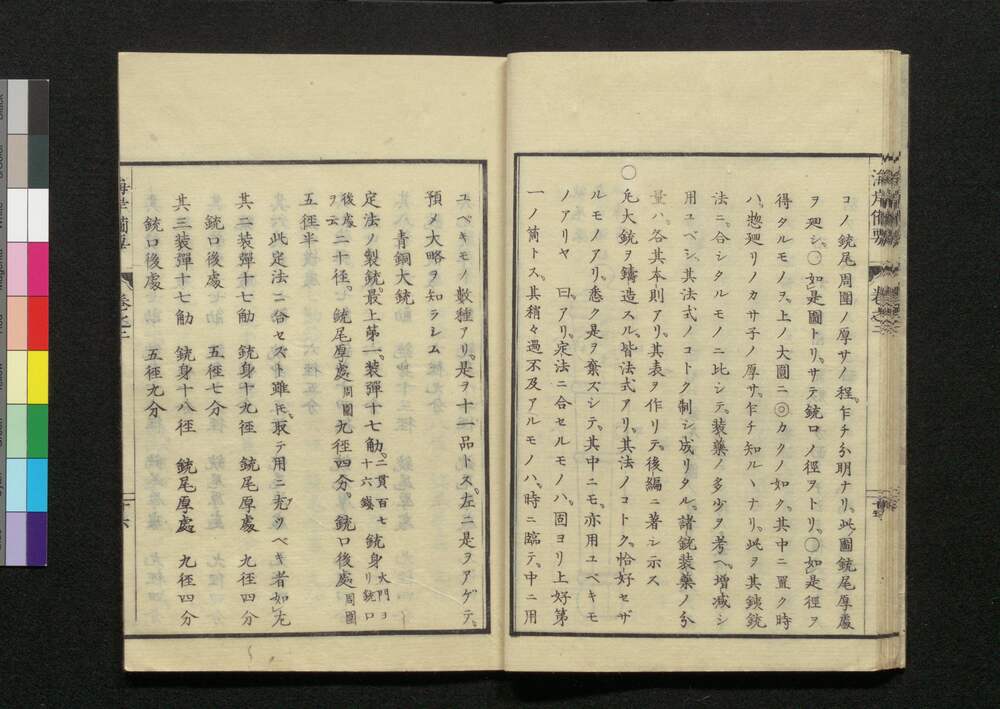 コノ銃尾周圍ノ厚サノ程。乍チ分明ナリ。此圖銃尾厚處
ヲ廻シ。〇如是圖トリ。サテ銃口ノ徑ヲトリ。〇如是徑ヲ
得タルモノヲ。上ノ大圓ニ◎カクノ如ク。其中ニ置ク時
ハ。惣廻リノカサ子ノ厚サ。乍チ知ルヽナリ。此ヲ其鐵銃
法ニ。合シタルモノニ比シテ。装藥ノ多少ヲ考ヘ。增减シ
用ユベシ。其法式ノコトク制シ成リタル。諸銃装藥ノ分
量ハ。各其本則アリ。其表ヲ作リテ。後編ニ著シ示ス
〇凡大銃ヲ鑄造スル。皆法式アリ。其法ノコトク。恰好セザ
ルモノアリ。悉ク是ヲ棄ズシテ。其中ニモ。亦用ユベキモ
ノアリヤ 曰。アリ。定法ニ合セルモノハ。固ヨリ上好第
一ノ筒トス。其稍々過不及アルモノハ。時ニ臨テ。中ニ用
ユベキモノ數種アリ。是ヲ十一品トス。左ニ是ヲアゲテ。
預メ大略ヲ知ラシム
青銅大銃
定法ノ製銃。最上第一。装彈十七觔。二貫百七十六錢 銃身 火門ヨリ銃口
後處ヲ云 二十徑。銃尾厚處 周圍 九徑四分。銃口後處 周圍
五徑半
此定法ニ合セスト雖𪜈。取テ用ニ充ツベキ者如左
其二装彈十七觔 銃身十九徑 銃尾厚處 九徑四分
銃口後處 五徑七分
其三装彈十七觔 銃身十八徑 銃尾厚處 九徑四分
銃口後處 五徑九分